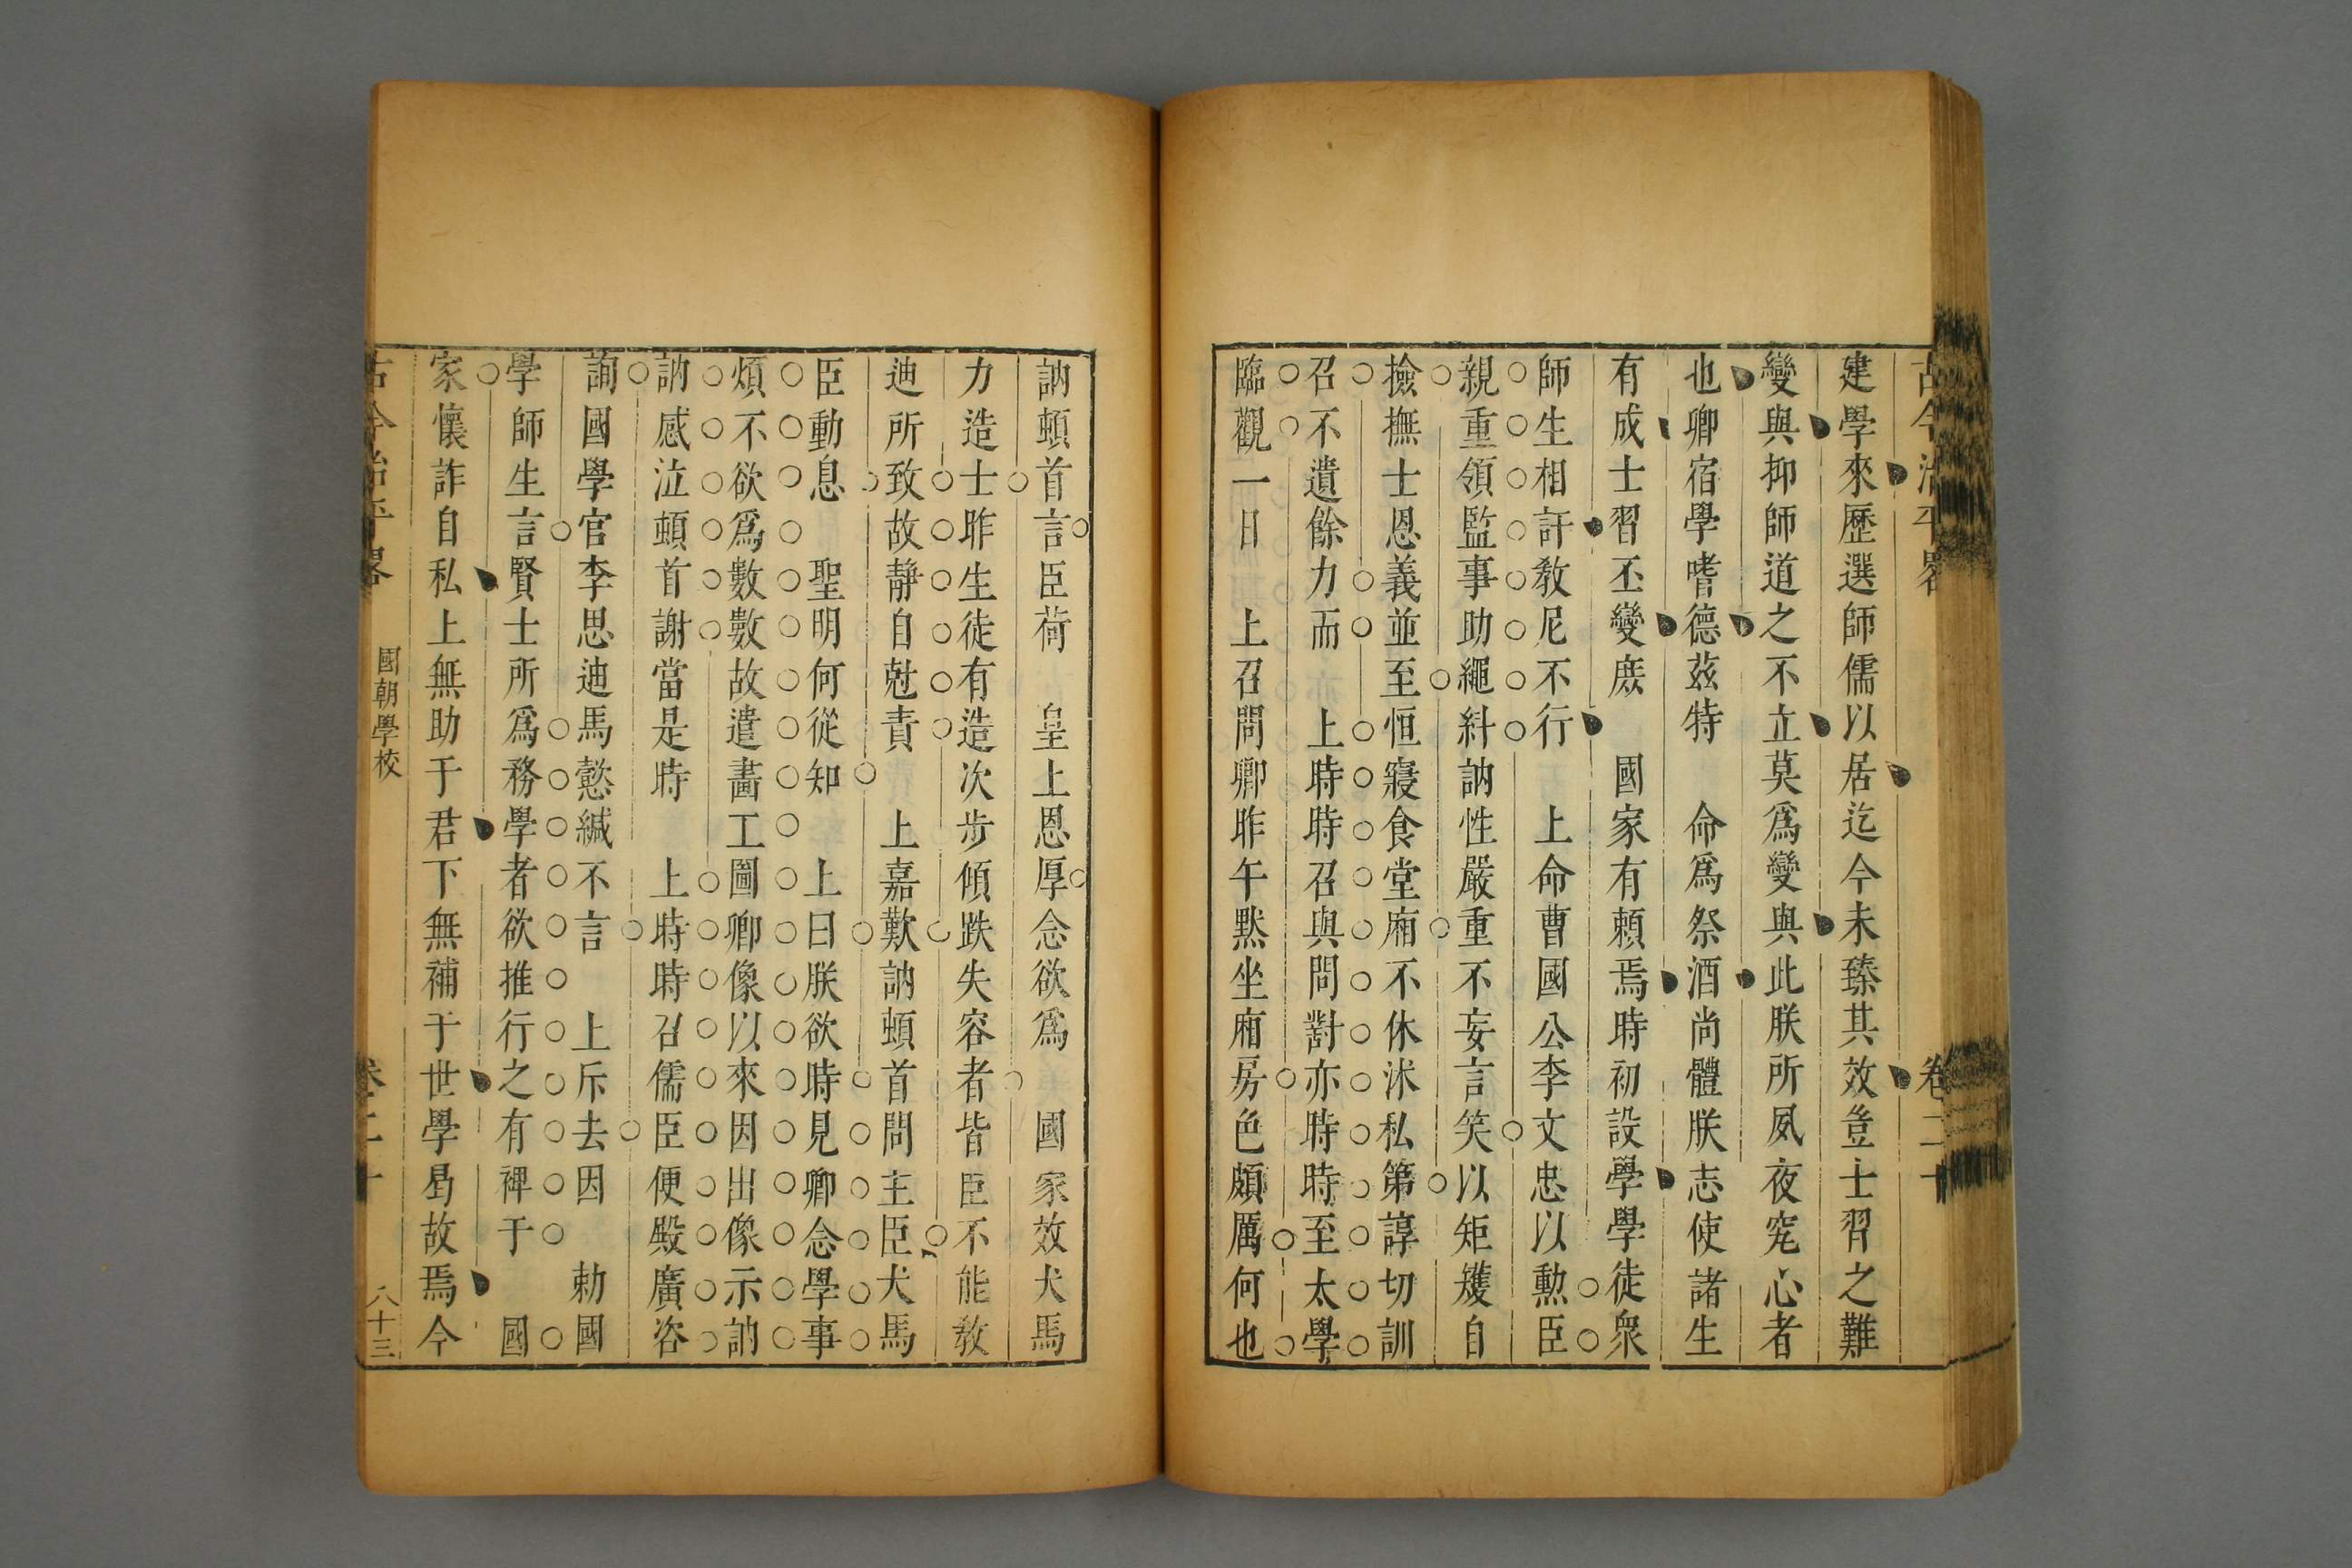 古今治平畧 卷二十
建學來歷選師儒以居迄今未臻其效豈士習之難
變與抑師道之不立莫爲變與此朕所夙夜究心者
也卿宿學嗜德茲特 命爲祭酒尚體朕志使諸生
有成士習丕變庶 國家有賴焉時初設學學徒衆
師生相訐教尼不行 上命曹國公李文忠以勲臣
親重領監事助繩糾訥性嚴重不妄言笑以矩矱自
撿撫士恩義並至恒寢食堂廂不休沐私第諄切訓
召不遺餘力而 上時時召與問對亦時時至太學
臨觀一日 上召問卿昨午默坐廂房色頗厲何也
訥頓首言臣荷 皇上恩厚念欲爲 國家效犬馬
力造士昨生徒有造次步傾跌失容者皆臣不能教
迪所致故靜自尅責 上嘉歎訥頓首問主臣犬馬
臣動息 聖明何從知 上曰朕欲時見卿念學事
煩不欲爲數數故遣畫工圖卿像以來因出像示訥
訥感泣頓首謝當是時 上時時召儒臣便殿廣咨
詢國學官李思迪馬懿緘不言 上斥去因 勅國
學師生言賢士所爲務學者欲推行之有裨于 國
家懷詐自私上無助于君下無補于世學曷故焉今
古今治平畧 國朝學校 卷二十 八十三